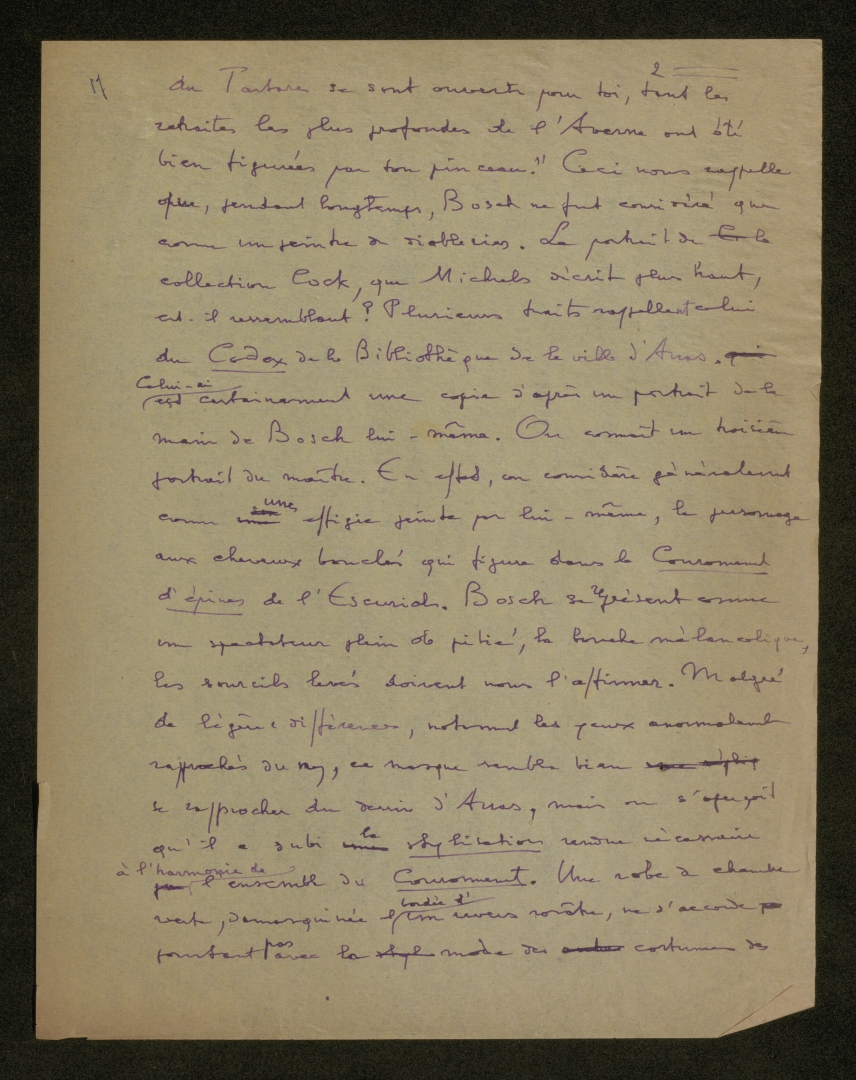 2
du Tartare se sont ouverts pour toi, tant les
retraites les plus profondes de l'Averne ont été
bien figurées par ton pinceau!" Ceci nous rappelle
que, pendant longtemps, Bosch ne fut considéré que
comme un peintre de diableries. Le portrait de la
collection Cock, que Michels décrit plus haut,
est-il ressemblant? Plusieurs traits rappellent celui
du Codex de la Bibliothèque de la ville d'Arras. qui
Celui-ci
est certainement une copie d'après un portrait de la
main de Bosch lui-même. On connaît un troisième
portrait du maître. En effet, on considère généralement
comme une effigie peinte par lui-même, le personnage
aux cheveux bouclés qui figure dans le Couronnement
d'épines de l'Escurial. Bosch se représente comme
un spectateur plein de pitié, la bouche mélancolique,
les sourcils levés doivent nous l'affirmer. Malgré
de légères différences, notamment les yeux anormalement
rapprochés du nez, ce masque semble bien
se rapprocher du dessin d'Arras, mais on s'aperçoit
qu'il a subi la stylisation rendue nécessaire
à l'harmonie de
l'ensemble du Couronnement. Une robe de chambre
bordée d'
verte, damasquinée et un revers rosâtre, ne s'accorde
pourtant pas avec la style mode des costumes des